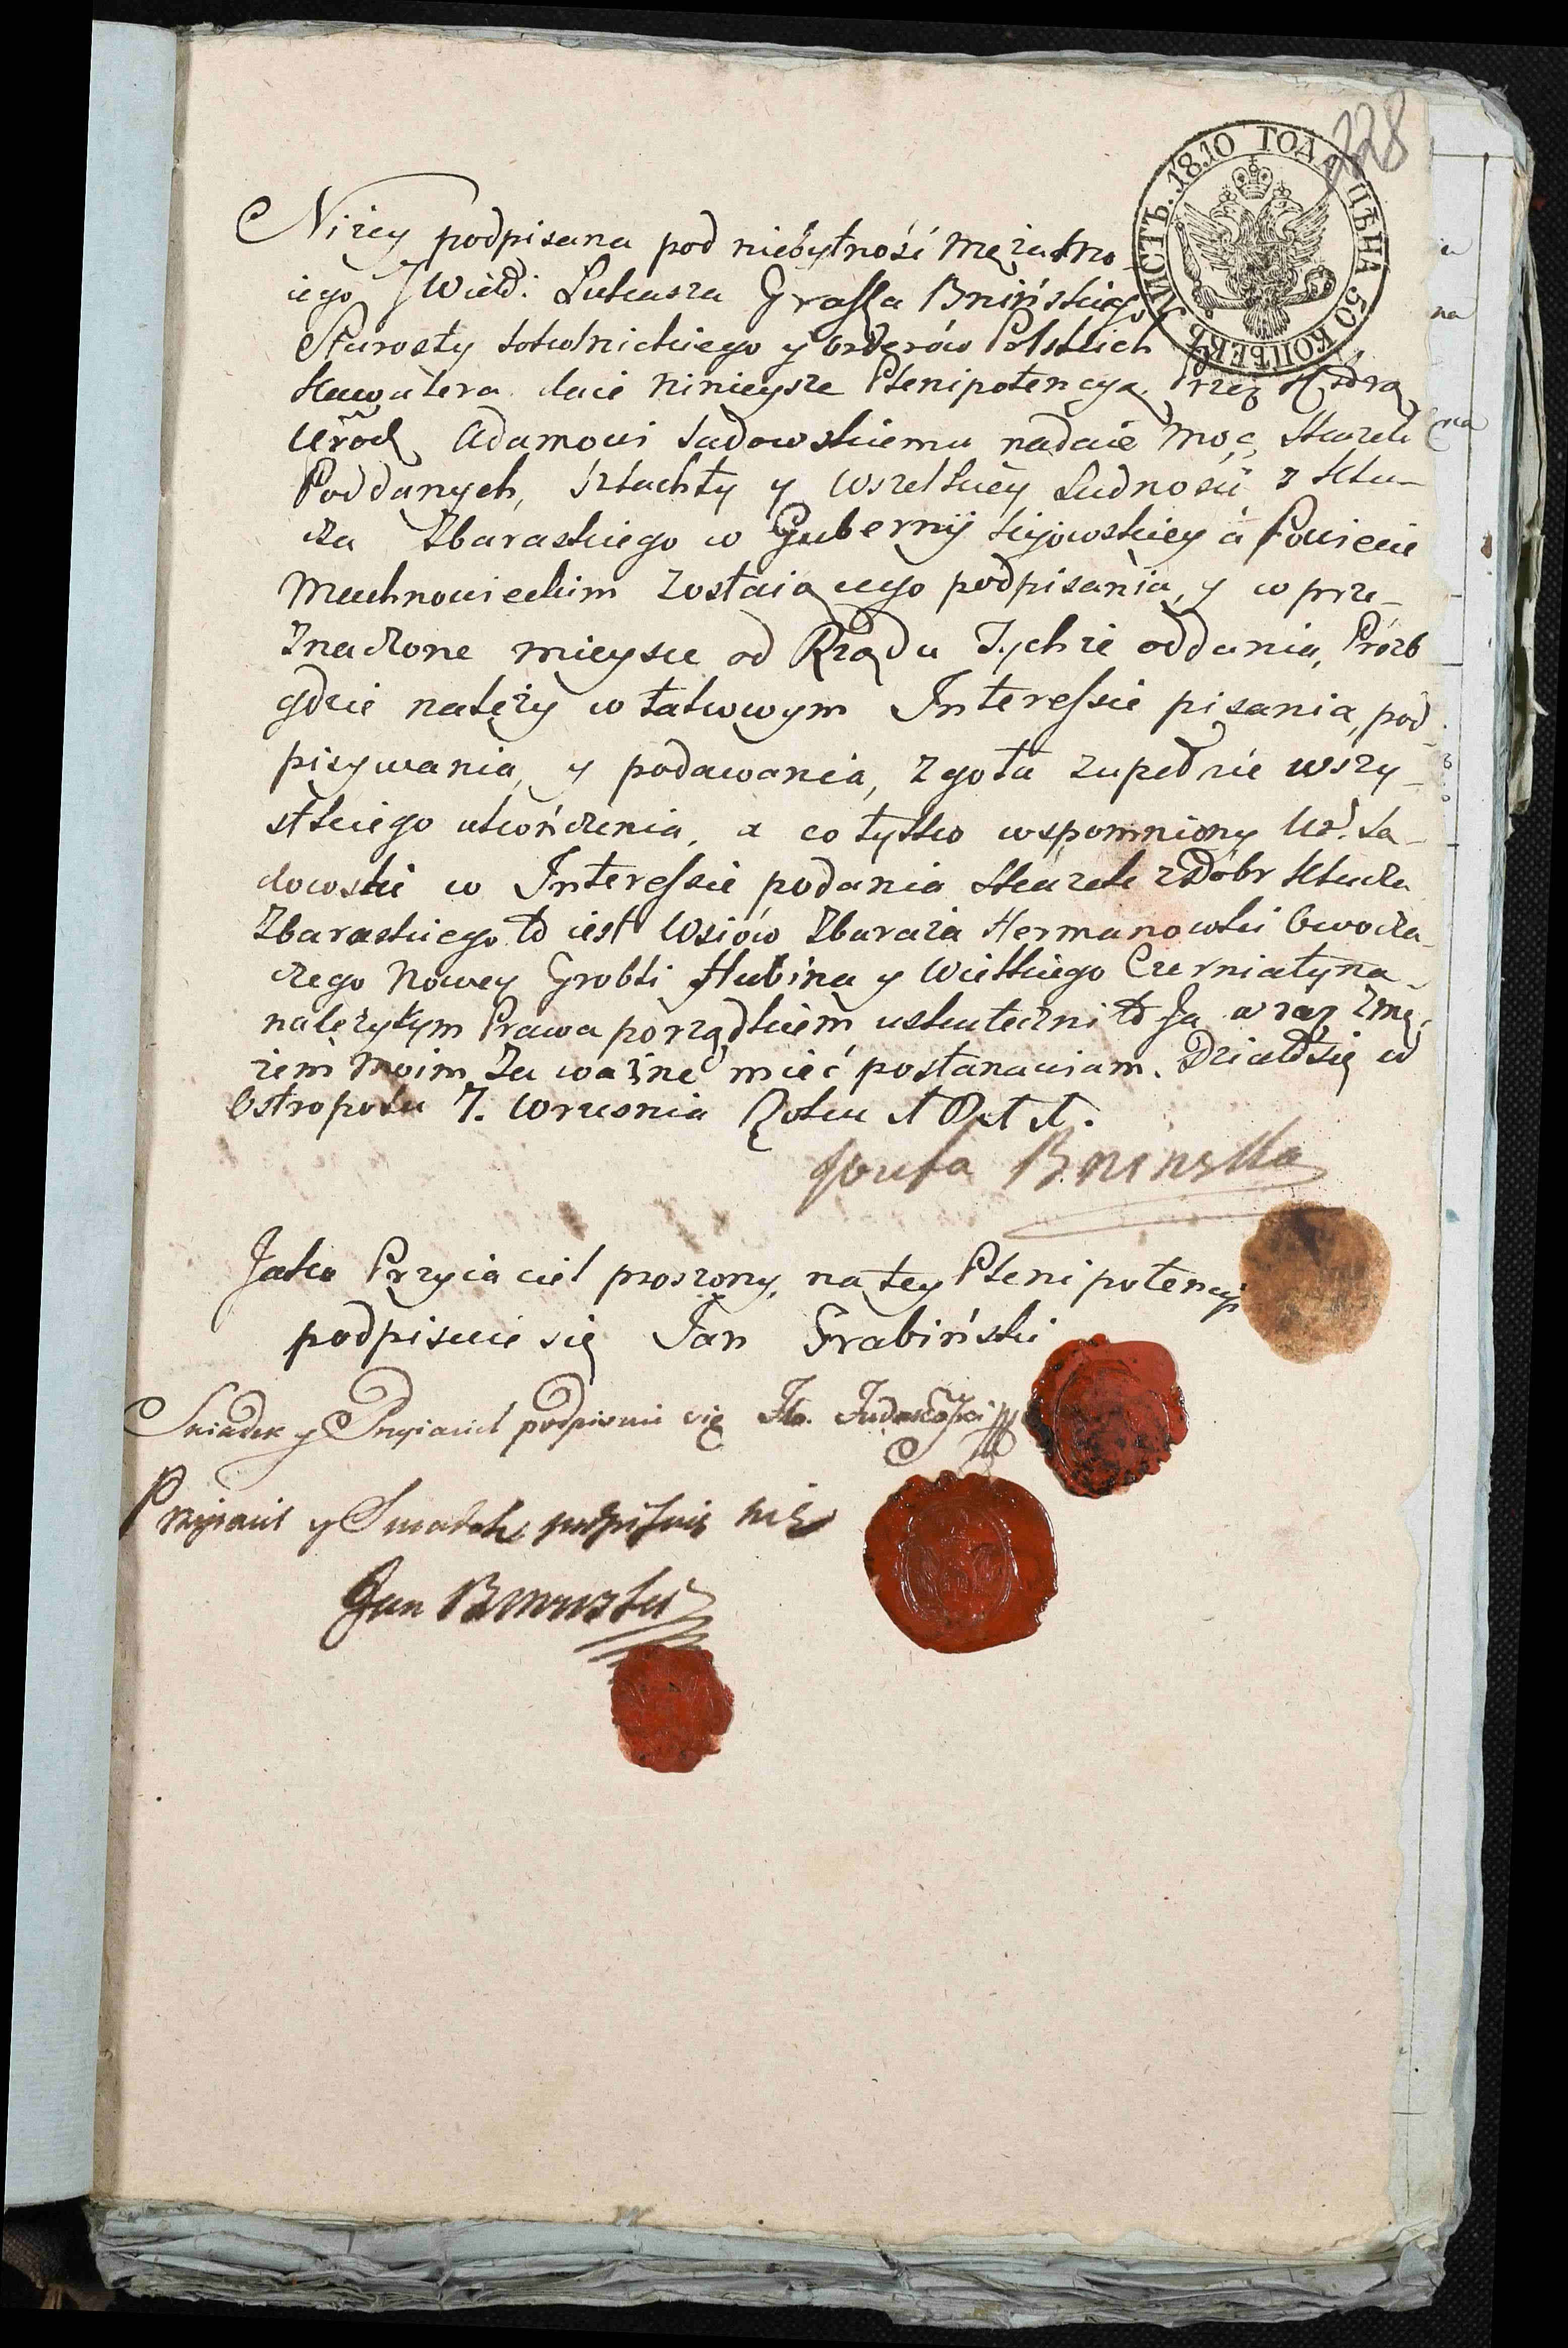 228
ЛИСТЪ. 1810 ГОДА ЦѢНА 50 КОПѢЕКЪ
Niżey podpisana pod niebytność Męża mo-
iego JWield: Łukasza Graffa Bnińskiego
Starosty sokolnickiego y orderów Polskich
Kawalera daie ninieysze Plenipotencyą Przez Którą
Urod Adamowi Sadowskiemu nadaie moc, Skazek
Poddanych, szlachty y wszelkiey Ludności z Klu-
cza Zbaraskiego w Gubernij kijowskiey a Powiecie
Machnowieckim zostaiącego podpisania, y w prze-
znaczone mieysce od Rządu Tychże oddania, Prozb
gdzie należy w takowym Interessie pisania, pod-
pisywania, y podawania, zgoła zupełnie wszy-
stkiego ukończenia, a co tylko wspomniony Ur. Sa-
dowski w Interessie podania skazek z Dobr Klucza
Zbaraskiego to iest Wsiów Zbaraża Hermanowki Owocza-
czego Nowey Grobli Hubina y Wielkiego Czerniatyna
należytym Prawa porządkiem uskuteczni to Ja wraz z mę-
żem Moim Za ważne mieć postanawiam. Działo się w
Ostropolu 7. Wrusnia Roku 1811.
Jozefa Bninska
Jako Przyiaciel proszony, na tey Plenipotencyi
podpisuie się Jan Grabiński
Swiadek y Przyiaciel podpisuie się
Przyiaciel y Swiadek podpisuie się
Jan